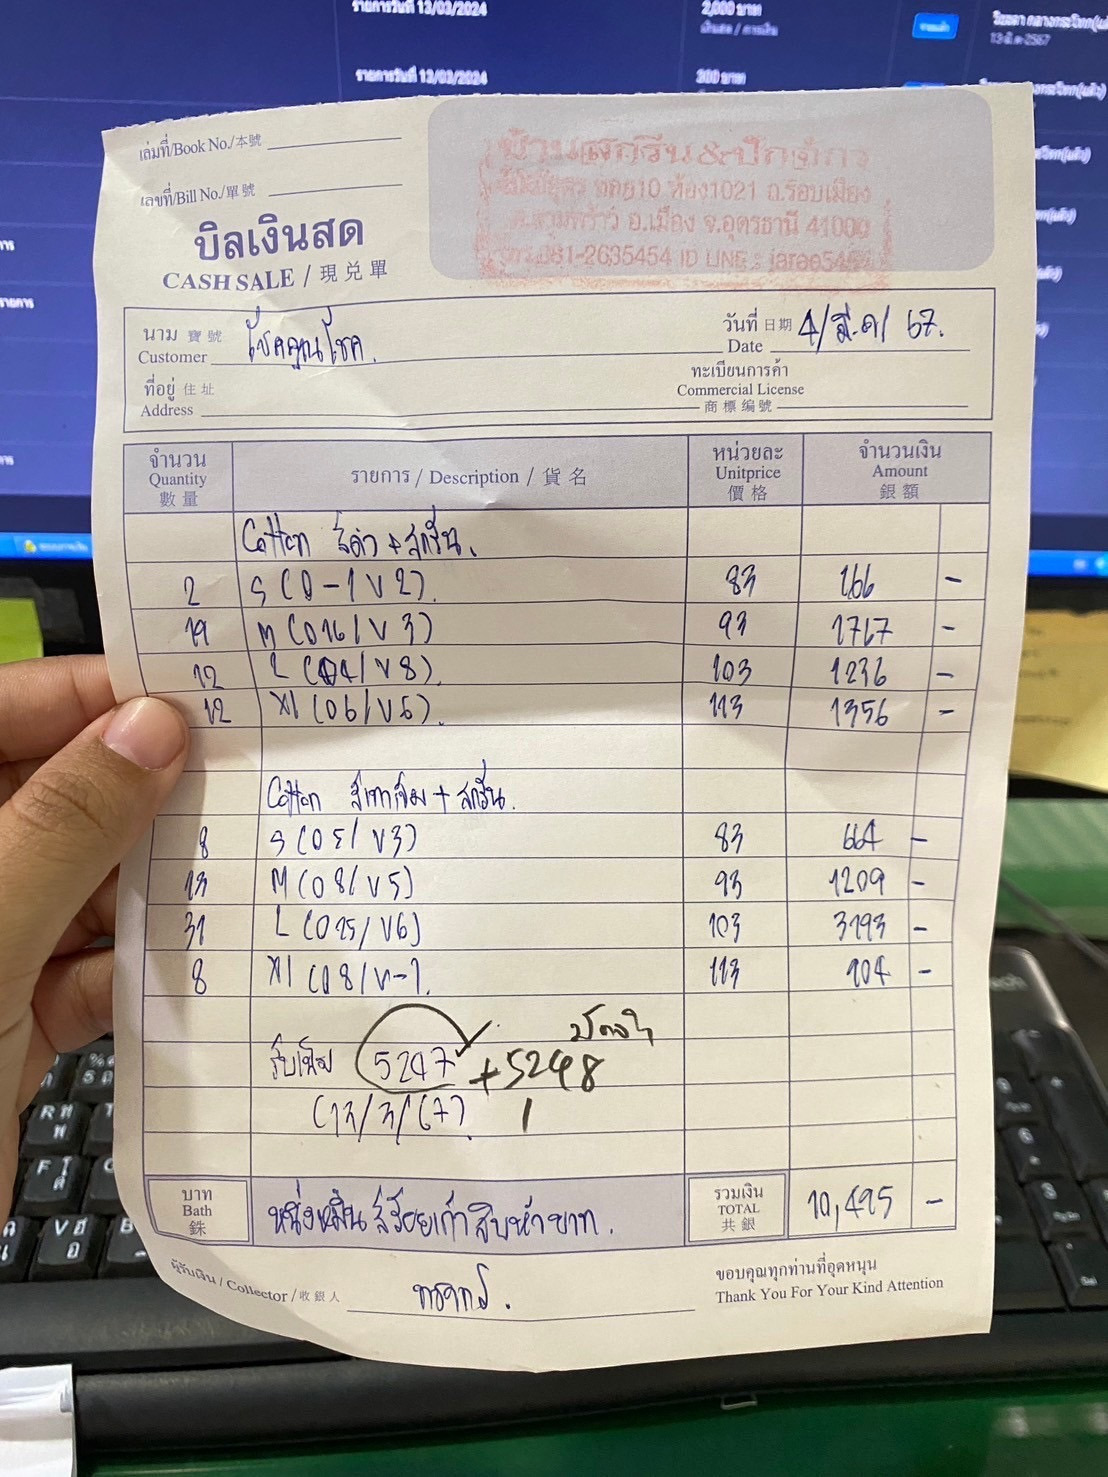 รายการวันที่ 13/03/2024
2,000 บาท
เงินสด / การเงิน
13-มี.ค-2567
รายการวันที่ 13/03/2024
300 บาท
เล่มที่/Book No./本號
เลขที่/Bill No./單號
บิลเงินสด
CASH SALE / 現兑單
บ้านสกรีน&ปักจักร
ซอย10 ห้อง1021 ถ.รอบเมือง
ต.สามพร้าว อ.เมือง จ.อุดรธานี 41000
โทร.081-2635454 ID LINE : jarae5454
นาม 寶號
Customer โชคคูณโชค.
วันที่ 日期 4/มี.ค/67.
Date
ที่อยู่ 住址
Address
ทะเบียนการค้า
Commercial License
商標编號
จำนวน Quantity 數量
รายการ / Description / 貨名
หน่วยละ Unitprice 價格
จำนวนเงิน Amount 銀額
Cotton สีดำ + สกรีน.
2 S (ด-1ญ2). 83 166 -
19 M (ด16/ญ3) 93 1767 -
12 L (ด4/ญ8). 103 1236 -
12 Xl (ด6/ญ6). 113 1356 -
Cotton สีเทาเข้ม + สกรีน.
8 S (ด5/ญ3) 83 664 -
13 M (ด8/ญ5) 93 1209 -
31 L (ด25/ญ6) 103 3193 -
8 Xl (ด8/ญ-). 113 904 -
รับเงิน 5247 + 5248
(13/3/67).
บาท Bath 銖
หนึ่งหมื่นสี่ร้อยเก้าสิบห้าบาท.
รวมเงิน TOTAL 共銀
10,495 -
ผู้รับเงิน / Collector / 收銀人
ขอบคุณทุกท่านที่อุดหนุน
Thank You For Your Kind Attention